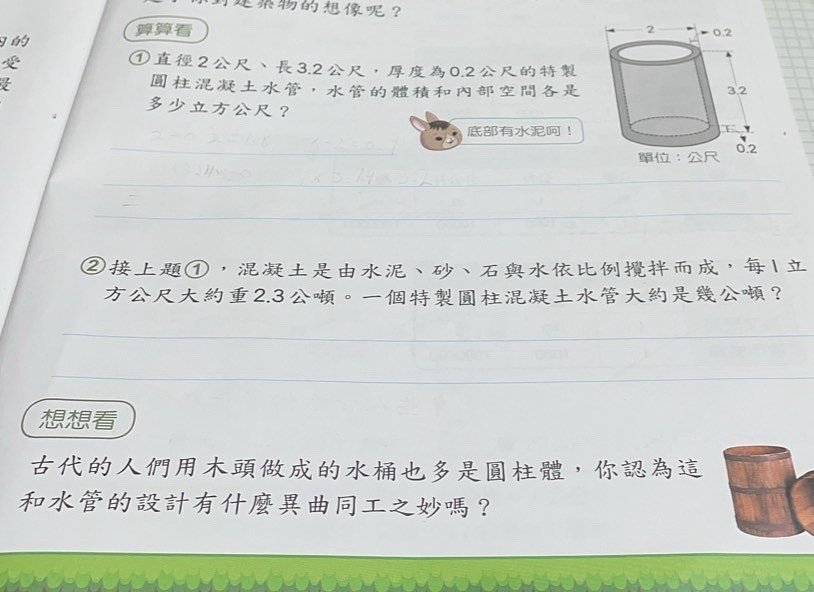 的想像呢？
的
受
算算看
①直徑2公尺、長3.2公尺，厚度為0.2公尺的特製
圓柱混凝土水管，水管的體積和內部空間各是
多少立方公尺？
底部有水泥呵！
2
0.2
3.2
0.2
單位：公尺
②接上題①，混凝土是由水泥、砂、石與水依比例攪拌而成，每1立
方公尺大約重2.3公噸。一個特製圓柱混凝土水管大約是幾公噸？
想想看
古代的人們用木頭做成的水桶也多是圓柱體，你認為這
和水管的設計有什麼異曲同工之妙嗎？